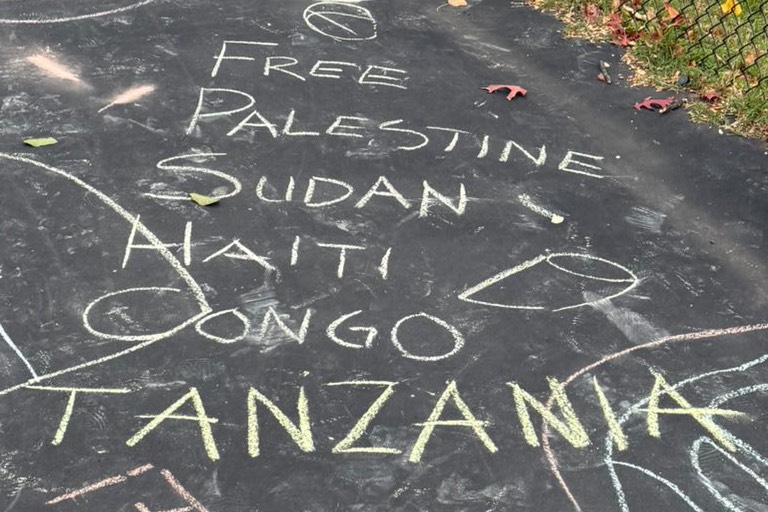 FREE
PALESTINE
SUDAN
HAITI
CONGO
TANZANIA